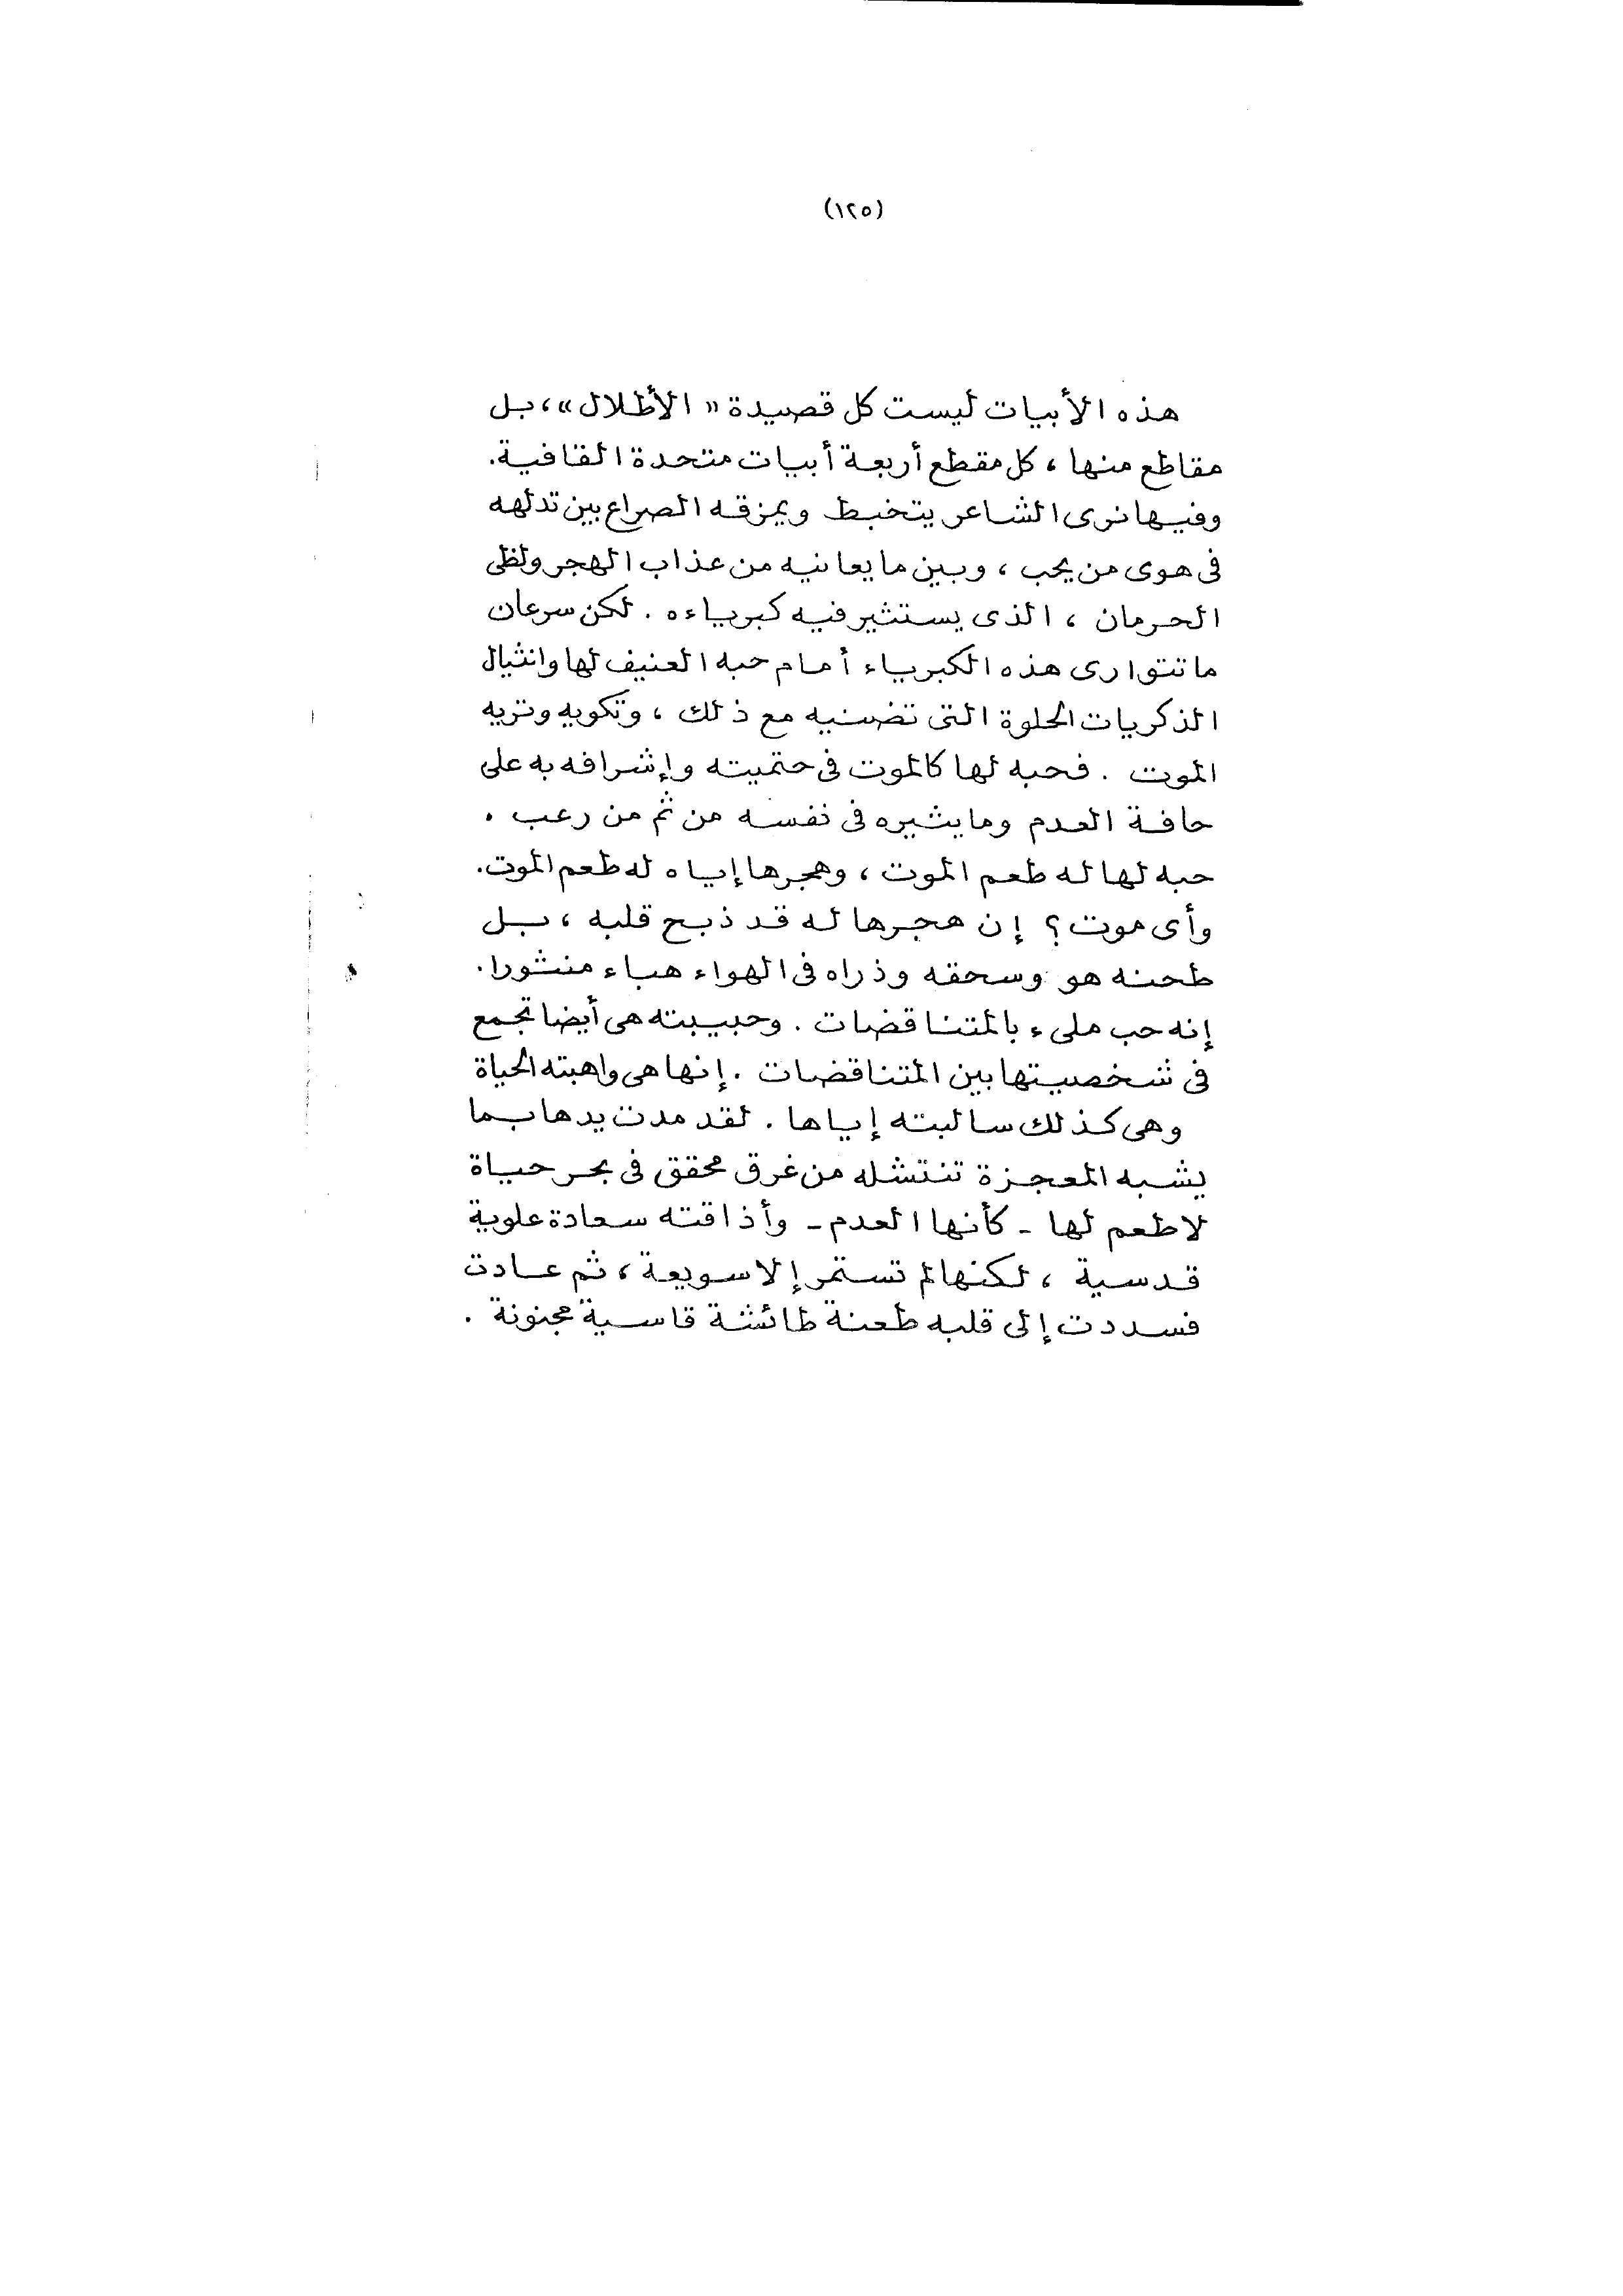 (١٢٥)
هذه الأبيات ليست كل قصيدة «الأطلال»، بل
مقاطع منها، كل مقطع أربعة أبيات متحدة القافية.
وفيها نرى الشاعر يتخبط ويمزقه الصراع بين تدلهه
فى هوى من يحب، وبين ما يعانيه من عذاب الهجر ولظى
الحرمان، الذى يستثير فيه كبرياءه. لكن سرعان
ما تتوارى هذه الكبرياء أمام حبه العنيف لها وانثيال
الذكريات الحلوة التى تضنيه مع ذلك، وتكويه وتريه
الموت. فحبه لها كالموت فى حتميته وإشرافه به على
حافة العدم وما يثيره فى نفسه من ثم من رعب.
حبه لها له طعم الموت، وهجرها إياه له طعم الموت.
وأى موت؟ إن هجرها له قد ذبح قلبه، بل
طحنه هو وسحقه وذراه فى الهواء هباء منثورا.
إنه حب ملىء بالمتناقضات. وحبيبته هى أيضا تجمع
فى شخصيتها بين المتناقضات. إنها هى واهبته الحياة
وهى كذلك سالبته إياها. لقد مدت يدها بما
يشبه المعجزة تنتشله من غرق محقق فى بحر حياة
لا طعم لها - كأنها العدم - وأذاقته سعادة علوية
قدسية، لكنها لم تستمر إلا سويعة، ثم عادت
فسددت إلى قلبه طعنة طائشة قاسية مجنونة.